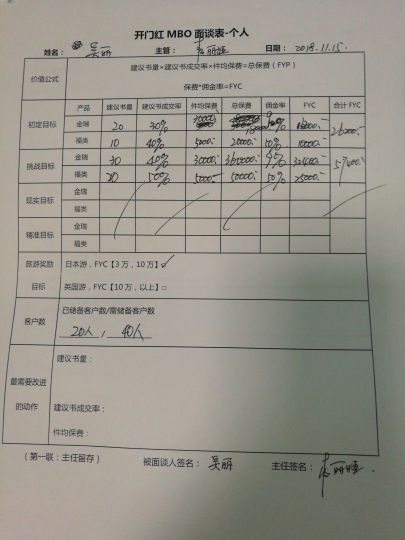 开门红 MBO 面谈表-个人
姓名： 吴丽 主管： 丽娅 日期： 2018.11.15.
价值公式 建议书量×建议书成交率×件均保费=总保费（FYP）
保费*佣金率=FYC
产品 建议书量 建议书成交率 件均保费 总保费 佣金率 FYC 合计 FYC
初定目标 金瑞 20 30%
福类 10 40% 5000.- 20000.- 50% 10000.-
挑战目标 金瑞 30 40% 30000.- 360000.- 9% 32400.- 57400.-
福类 20 50% 5000.- 50000.- 50% 25000.-
现实目标 金瑞
福类
精准目标 金瑞
福类
旅游奖励 日本游，FYC【3 万，10 万】□✓
目标 英国游，FYC【10 万，以上】□
客户数 已储备客户数/需储备客户数
20人， 40人
最需要改进的动作 建议书量：
建议书成交率：
件均保费：
（第一联：主任留存） 被面谈人签名： 吴丽 主任签名： 丽娅